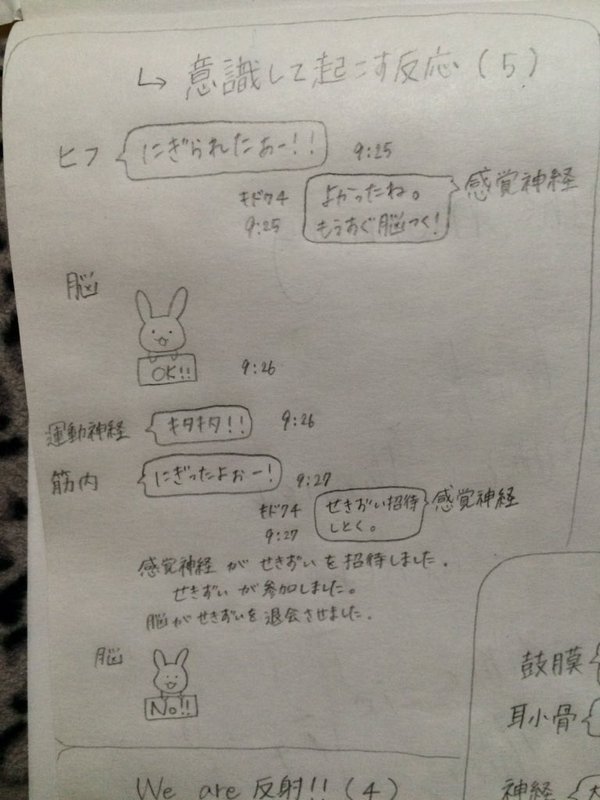 ↳ 意識して起こす反応(5)
ヒフ にぎられたおー!! 9:25
キドク4 9:25
よかったね。
もうすぐ脳つく!
感覚神経
脳
OK!!
9:26
運動神経 キタキタ!! 9:26
筋肉 にぎったよぉー! 9:27
キドク4 9:27
せきずい招待
しとく。
感覚神経
感覚神経 が せきずい を 招待しました.
せきずい が 参加しました。
脳が せきずいを 退会させました.
脳
No!!
鼓膜
耳小骨
We are 反射!!(4)
神経